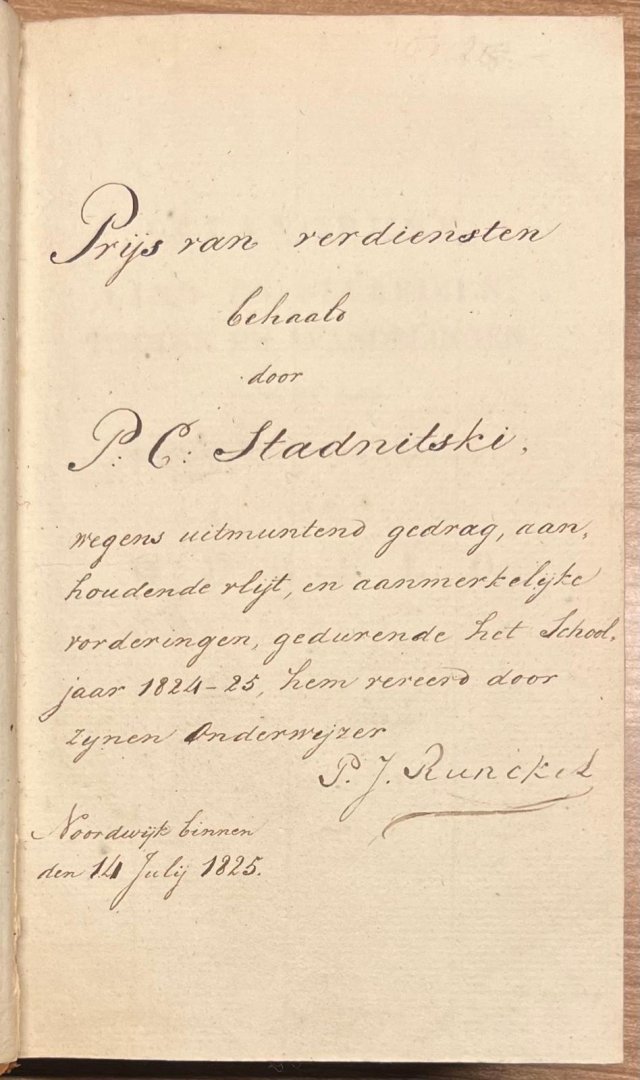 Prijs van verdiensten
behaald
door
P: C: Stadnitski,
wegens uitmuntend gedrag, aan,
houdende vlijt, en aanmerkelijke
vorderingen, gedurende het School,
jaar 1824-25, hem vereerd door
zijnen Onderwijzer
P. J. Runckel
Noordwijk binnen
den 14 Julij 1825.